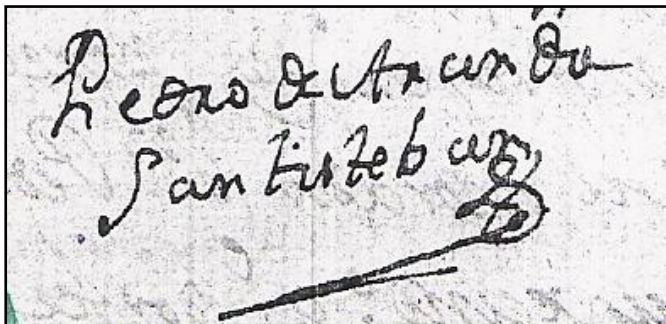 Pedro de Aranda
Santisteban